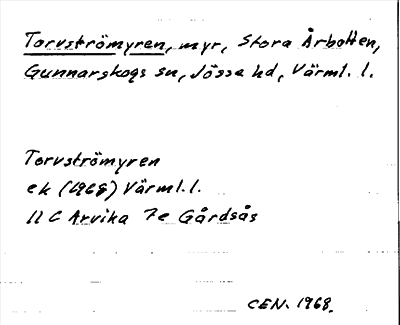 Torvströmyren, myr, Stora Årbotten,
Gunnarskogs sn, Jösse hd, Värml. l.
Torvströmyren
ek (1968) Värml. l.
11 C Arvika 7e Gårdsås
CEN. 1968.